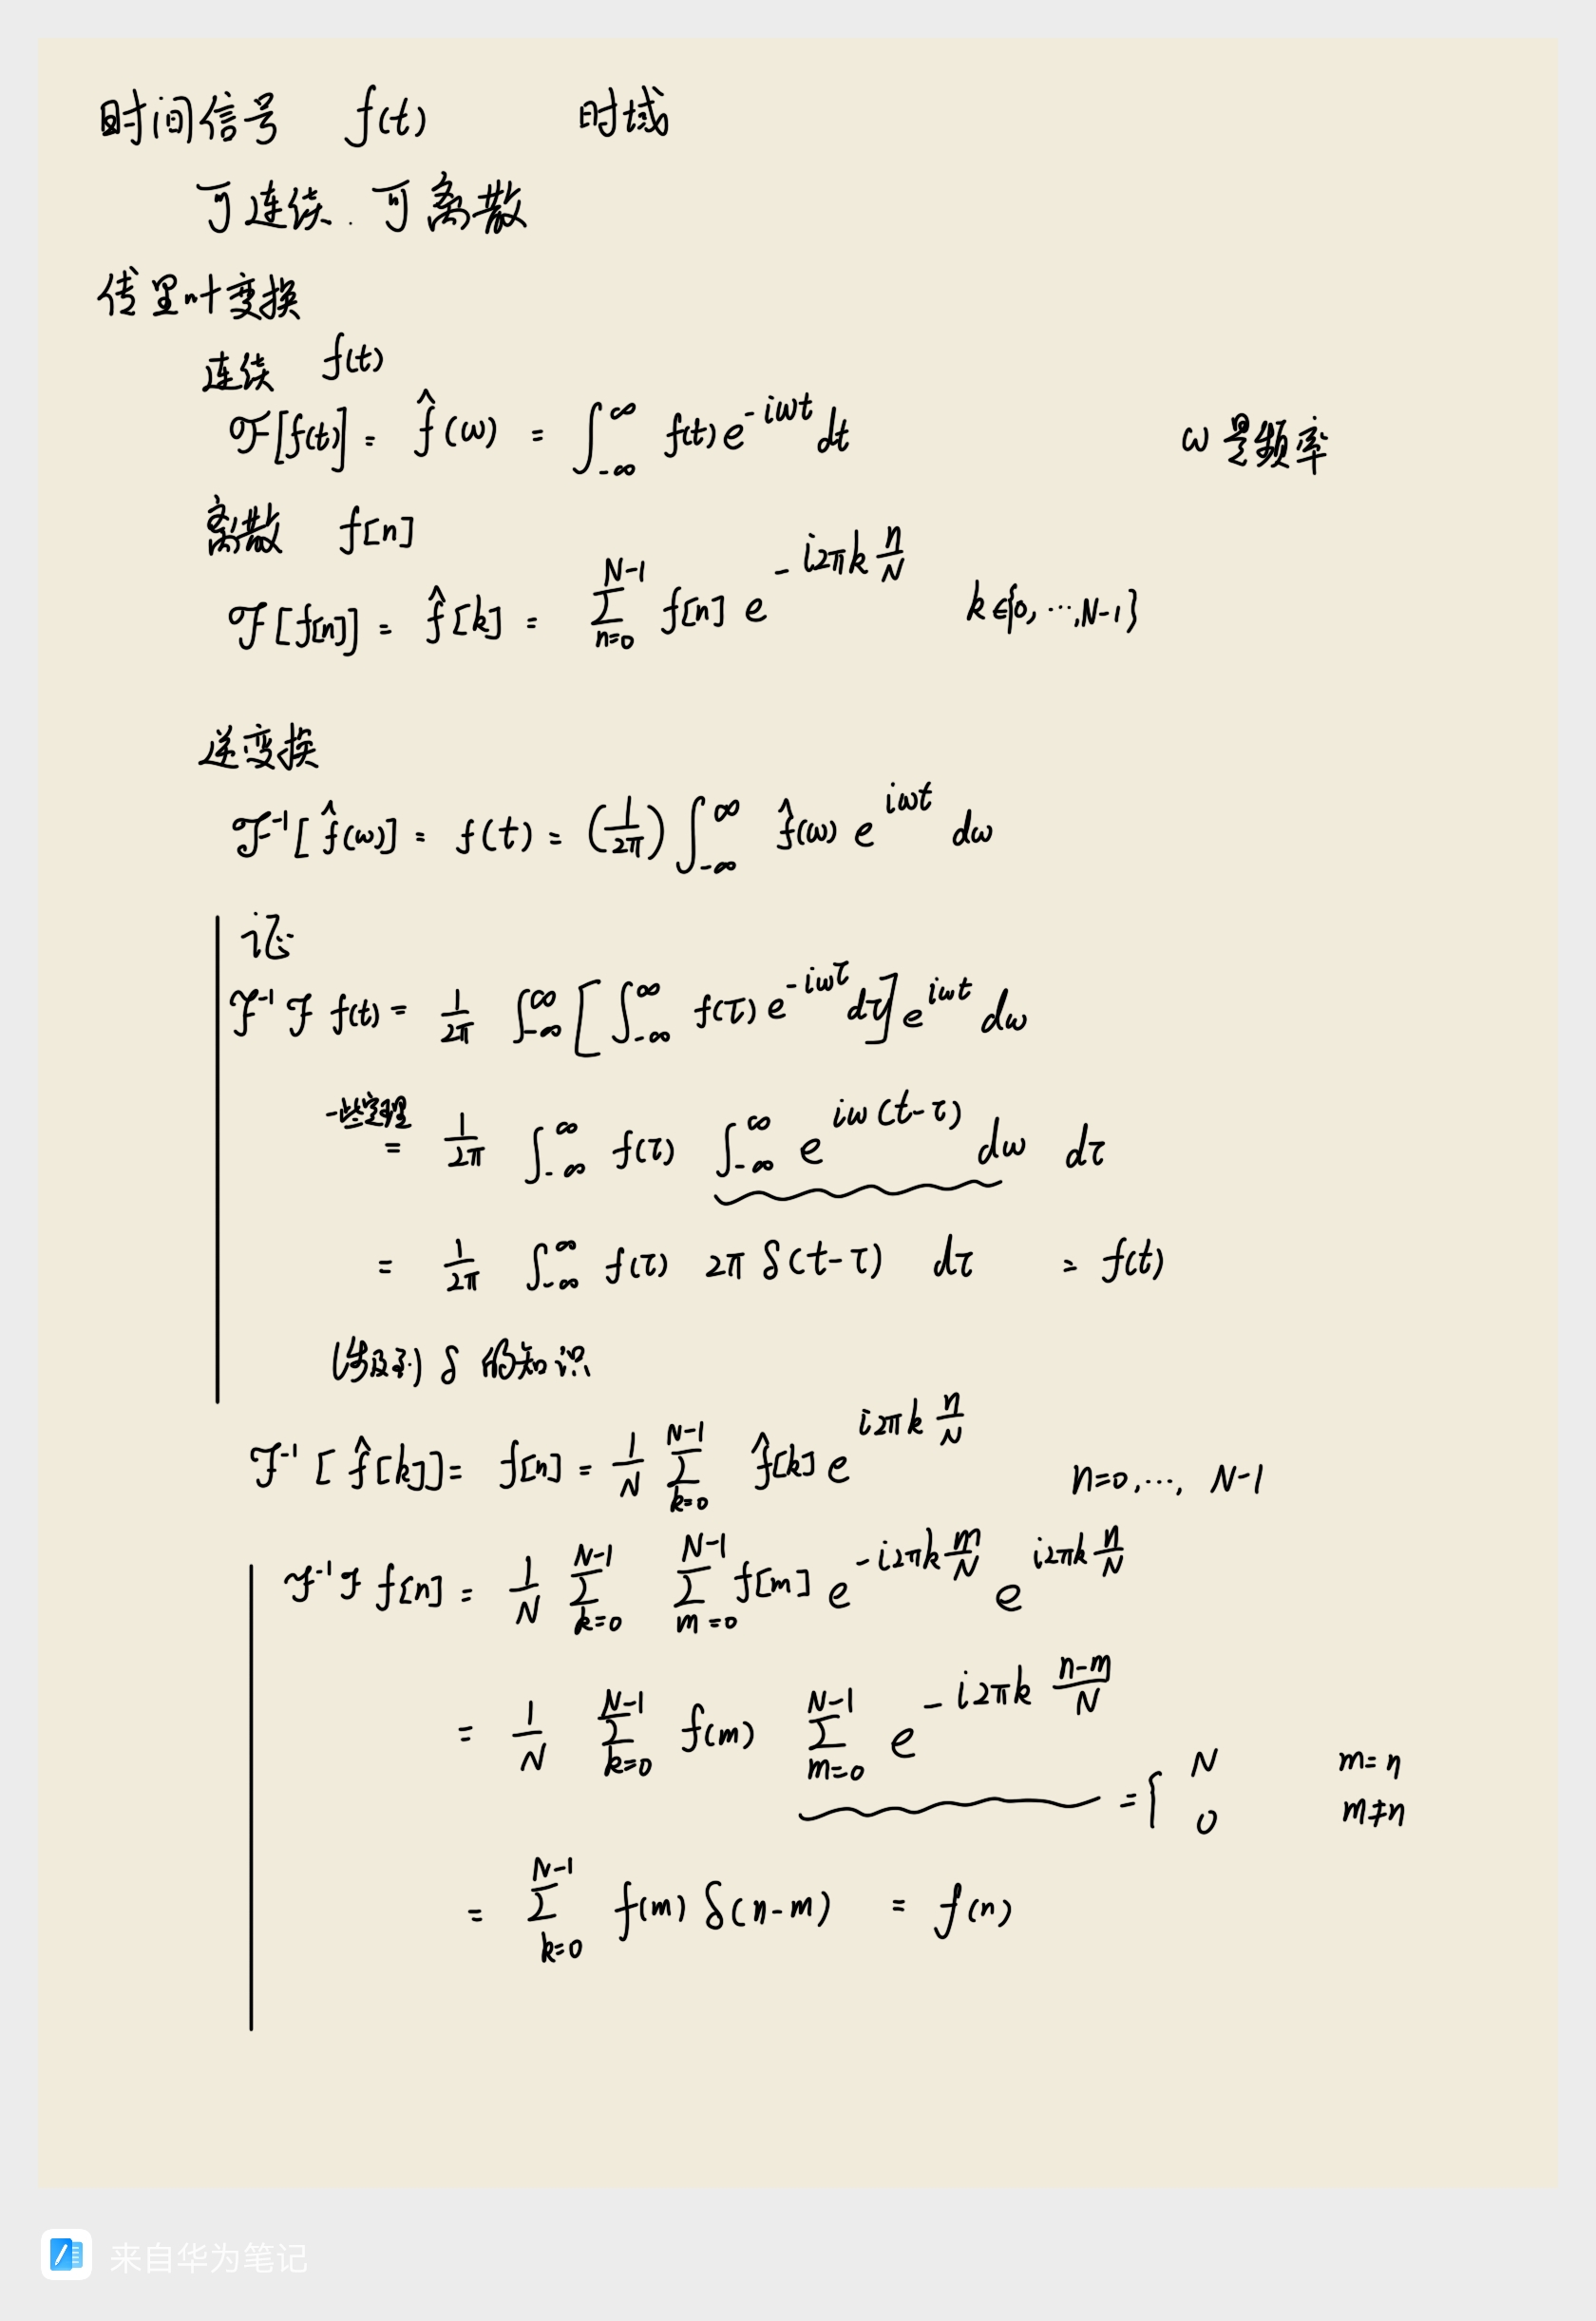 时间信号 f(t) 时域
可连续. 可离散
傅里叶变换
连续 f(t)
ℱ[f(t)] = f̂(ω) = ∫_{-∞}^{∞} f(t) e^{-iωt} dt ω是频率
离散 f[n]
ℱ[f[n]] = f̂[k] = ∑_{n=0}^{N-1} f[n] e^{-i2πk n/N} k∈{0, ⋯, N-1}
逆变换
ℱ^{-1}[f̂(ω)] = f(t) = (1/2π) ∫_{-∞}^{∞} f̂(ω) e^{iωt} dω
证
ℱ^{-1} ℱ f(t) = 1/2π ∫_{-∞}^{∞} [∫_{-∞}^{∞} f(τ) e^{-iωτ} dτ] e^{iωt} dω
一些定理
= 1/2π ∫_{-∞}^{∞} f(τ) ∫_{-∞}^{∞} e^{iω(t-τ)} dω dτ
= 1/2π ∫_{-∞}^{∞} f(τ) 2π δ(t-τ) dτ = f(t)
(涉及到) δ 的知识
ℱ^{-1}[f̂[k]] = f[n] = 1/N ∑_{k=0}^{N-1} f̂[k] e^{i2πk n/N} n=0, ⋯, N-1
ℱ^{-1} ℱ f[n] = 1/N ∑_{k=0}^{N-1} ∑_{m=0}^{N-1} f[m] e^{-i2πk m/N} e^{i2πk n/N}
= 1/N ∑_{k=0}^{N-1} f(m) ∑_{m=0}^{N-1} e^{-i2πk (n-m)/N} = { N m=n
0 m≠n
= ∑_{k=0}^{N-1} f(m) δ(n-m) = f(n)
来自华为笔记